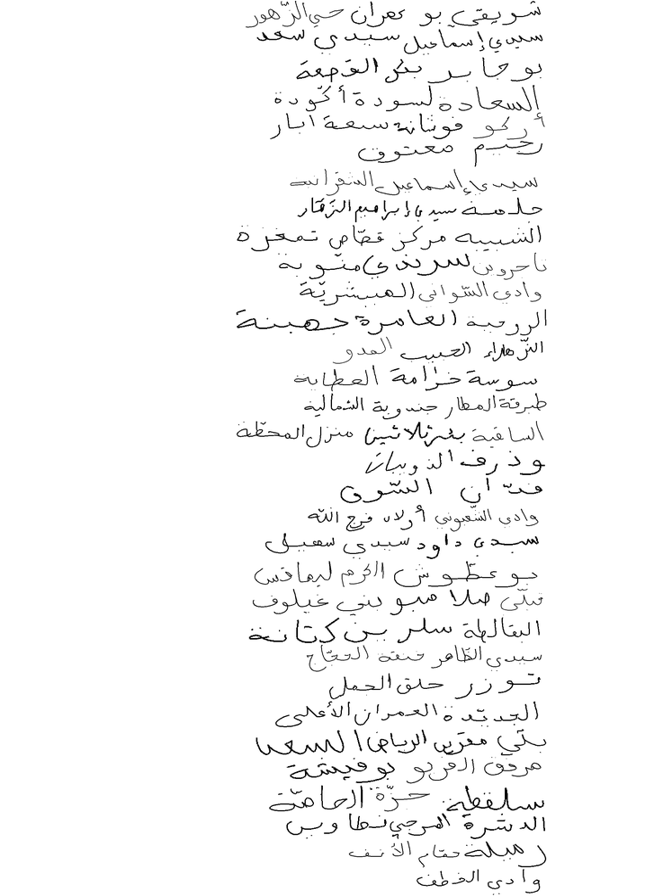 شريفي بو عمران حي الزّهور
سيدي إسماعيل سيدي سعد
بو جابر بئر القصعة
السعادة لسودة أكّودة
أركو فوشانة سبعة آبار
رخيم معتوق
سيدي إسماعيل الشقرانية
جلمة سيدي إبراهيم الزّقّار
الشبيبة مركز قصّاص تمغزة
تاجروين سرندي منّوبة
وادي السّواني المبشريّة
الروحية العامرة جهينة
الزّهراء الحبيب
سوسة حزامة العطاية
طبرقة المطار جندوبة الشمالية
الساقية بئر ثلاثين منزل المحطّة
وذرف الذويبات
فتّان السّوق
وادي الشعبوني أولاد فرج الله
سيدي داود سيدي سهيل
بو عطّوش الكرم ليماقس
قبلّي صلامبو بني غيلوف
البقالطة سلر بن كتانة
سيدي الظّاهر خنقة الحجّاج
توزر حلق الجمل
الجديدة العمران الأعلى
بلّي مقرين الرياض السعدا
مرفق القربو بوفيشة
سلقطة حزّة الحامّة
الدشرة المرجى نطاوين
رميلة حمّام الأنف
وادي الخطف